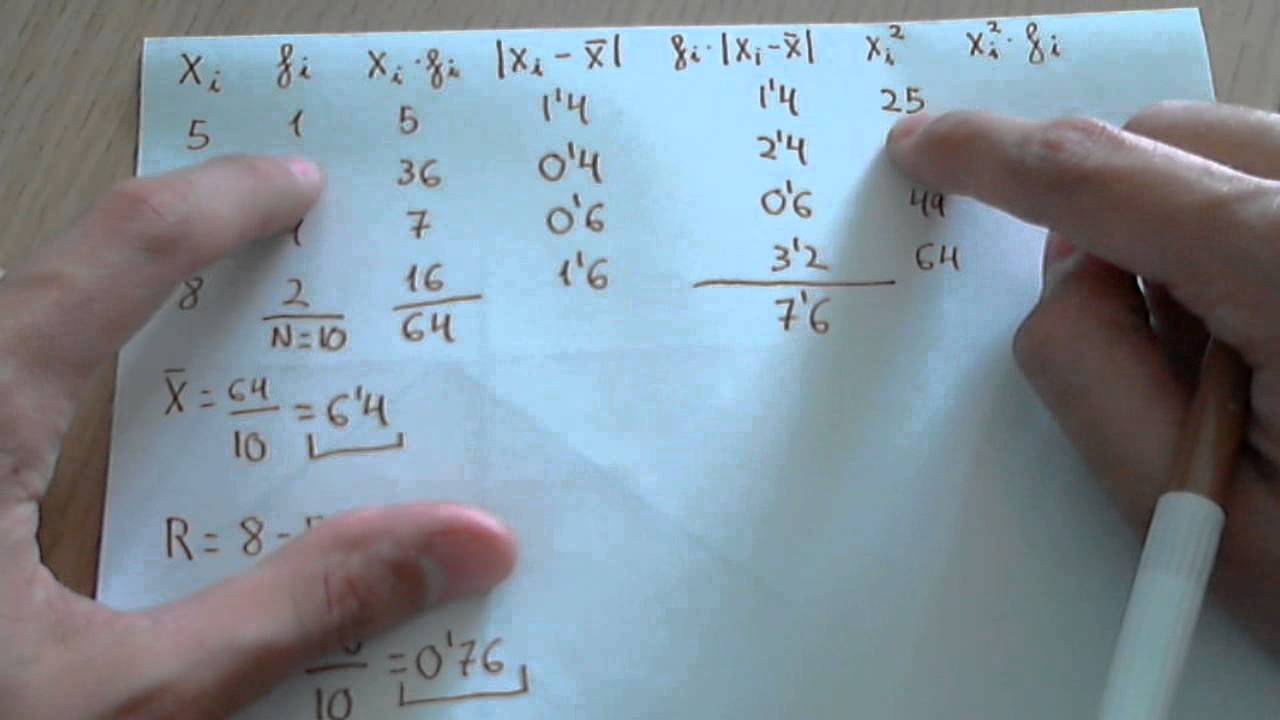 xᵢ fᵢ xᵢ·fᵢ |xᵢ - x̄| fᵢ·|xᵢ - x̄| xᵢ² xᵢ²·fᵢ
5 1 5 1'4 1'4 25
36 0'4 2'4
1 7 0'6 0'6 49
8 2 16 1'6 3'2 64
N=10 64 7'6
x̄ = 64/10 = 6'4
R = 8 -
/10 = 0'76